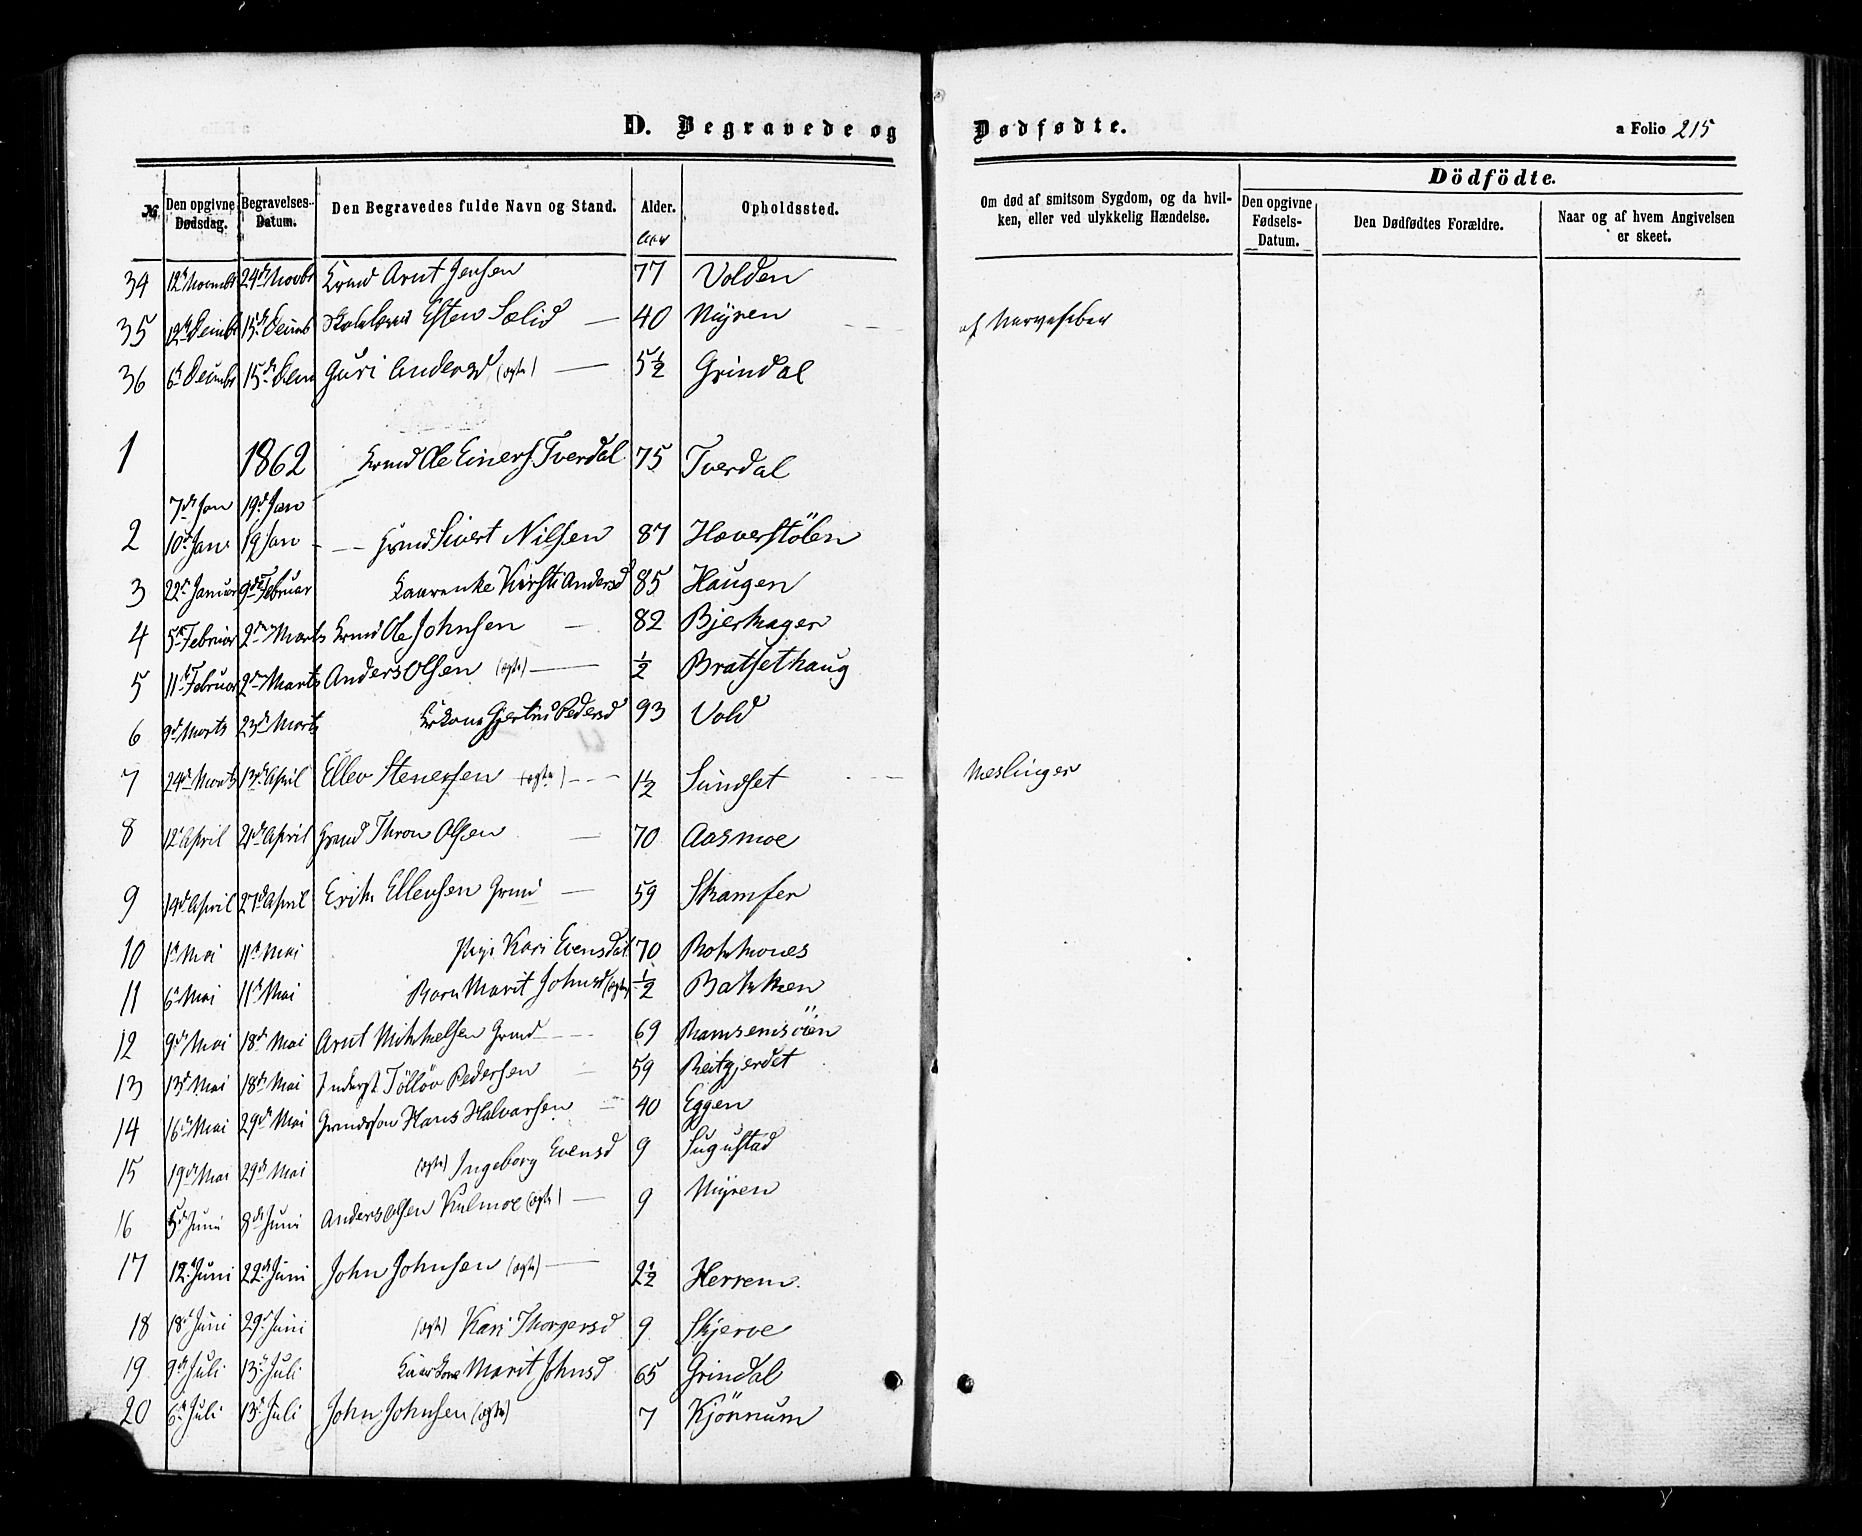 D. Begravede og Dødfødte. a Folio 215
Dödfödte.
№ Den opgivne Dødsdag. Begravelses-Datum. Den Begravedes fulde Navn og Stand. Alder. Opholdssted. Om død af smitsom Sygdom, og da hvilken, eller ved ulykkelig Hændelse. Den opgivne Fødsels-Datum. Den Dødfødtes Forældre. Naar og af hvem Angivelsen er skeet.
Aar
34 12t Novmbr 24de Novbr Arnt Jensen 77 Volden
35 15de Esten Sælid — 40 Myren af Nervefeber
36 6te 15de Guri Andersd (ægte) — 5 1/2 Grindal
1 1862 Ole Einers. Tverdal 75 Tverdal
7de Jan 19d Jan
2 10d Jan 19 Jan Grmd Sivert Nilsen 87 Hæverstölen
3 22d Januar 9de Februar Kirsti Andersd 85 Haugen
4 5te Februar 2den Marts Ole Johnsen — 82 Bjerkager
5 11te Februar 2den Marts Anders Olsen (ægte) — 1/2 Bratsethaug
6 9d Marts 23de Marts Pedersd 93 Vold
7 24de Marts 13de April Ellev Stenersen (ægte) — 1 1/2 Sundset Meslinger
8 12t April 21de April Grmd Thron Olsen — 70 Aasmoe
9 19d April 27d April Erik Ellevsen Grmd — 59 Skamfer
10 1te Mai 11te Mai Pige Kari Evensdat 70 Rokkones
11 6te Mai 11te Mai Barn Marit Johnsd (ægte) 1/2 Bakken
12 9de Mai 18de Mai Arnt Mikkelsen Grmd — 69 Ramsemsöien
13 13de Mai 18de Mai Inderst Tölløv Pedersen — 59 Reitgjerdet
14 16de Mai 29de Mai Grmdsøn Hans Halvorsen — 40 Eggen
15 19de Mai 29de Mai (ægte) Ingeborg Evensd 9
16 5de Juni 8de Juni Anders Olsen Kulmoe (ægte) — 9 Myren
17 12te Juni 22de Juni John Johnsen (ægte) — 2 1/2 Herrem.
18 18de Juni 29de Juni (ægte) Kari Thorgersd 9 Skjerve
19 9de Juli 13de Juli Marit Johnsd 65 Grindal
20 6te Juli 13de Juli John Johnsen (ægte) 7 Kjönnum